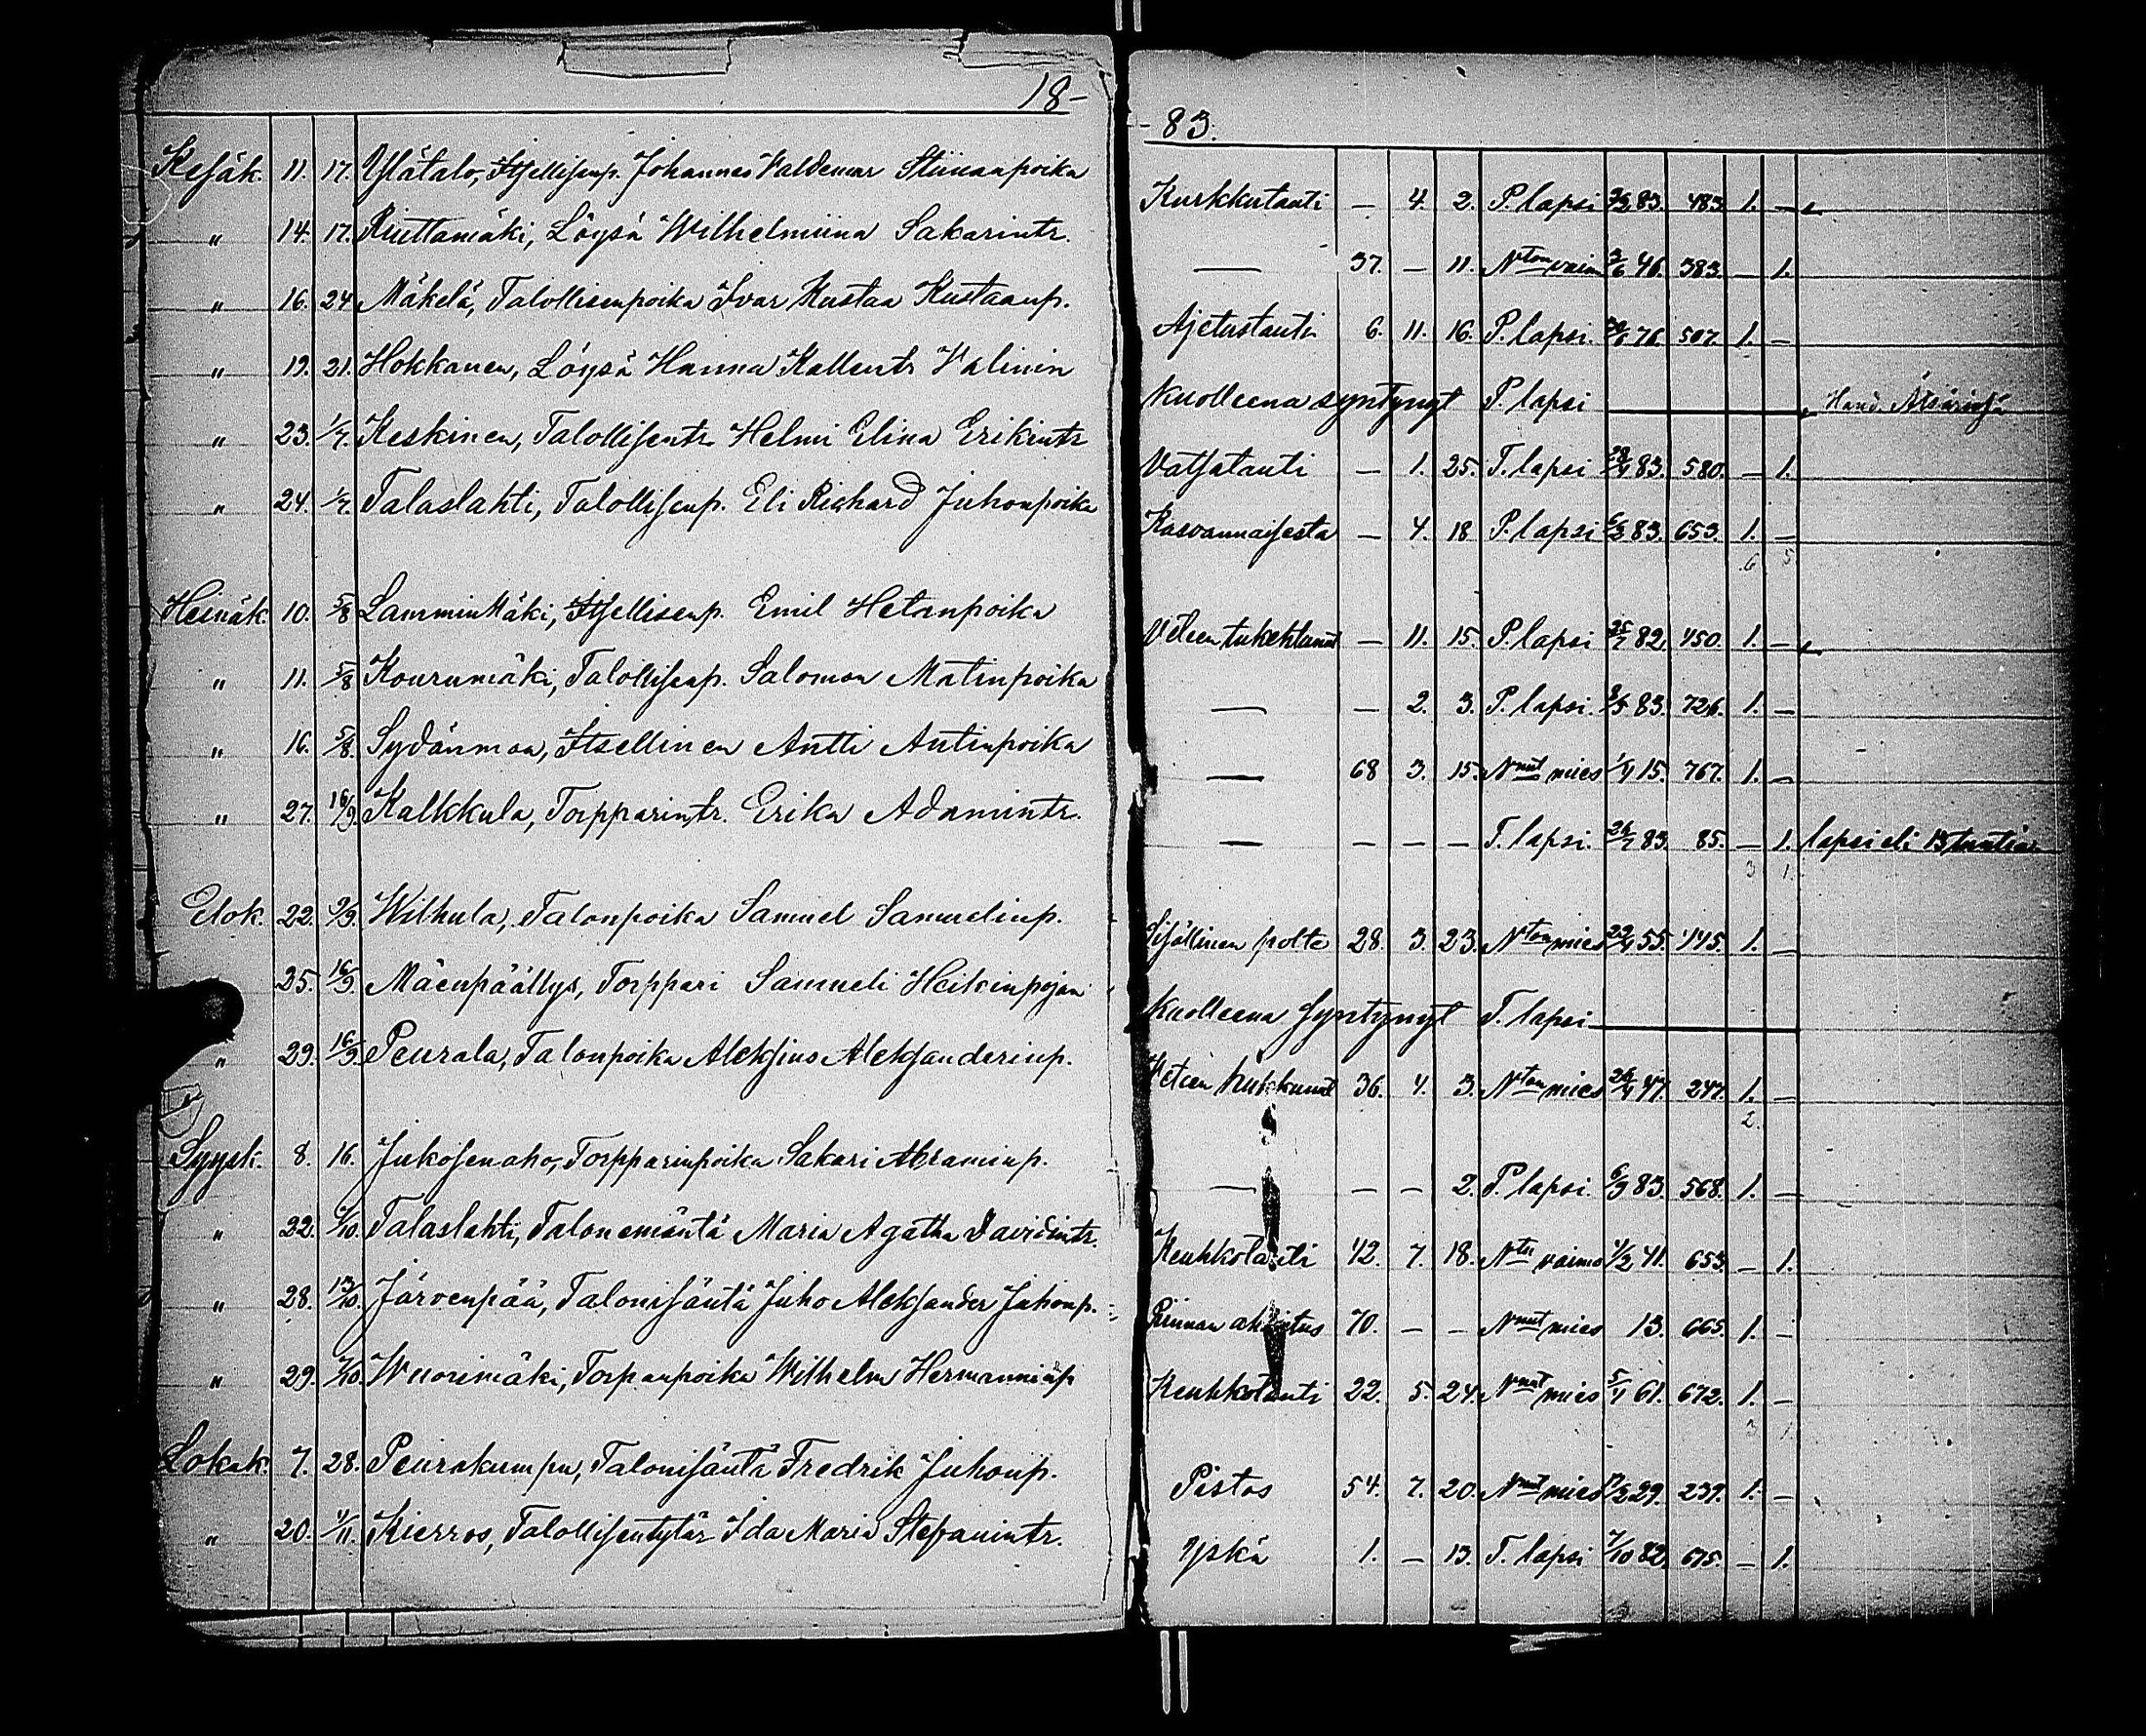 18-
- 83.
Kesäk. 11. 17. Ylätalo, Itsellisenp. Johannes Valdemar Stiinanpoika Kurkkutauti — 4. 2. P. lapsi 83. 483. 1. —
" 14. 17. Riuttamäki, Löysä Wilhelmiina Sakarintr. — 37. — 11. Nton vaimo 3/6 46. 383. — 1.
" 16. 24 Mäkelä, Talollisenpoika Ivar Kustaa Kustaanp. Ajetustauti 6. 11. 16. P. lapsi. 76. 507. 1. —
" 19. 21. Hokkanen, Löysä Hanna Kallentr Kuolleena syntynyt P. lapsi
" 23. 1/7. Keskinen, Talollisentr Helmi Elina Erikintr Vatsatauti — 1. 25. T. lapsi 28/4 83. 580. — 1.
" 24. 1/7. Talaslahti, Talollisenp. Eli Richard Juhonpoika Kasvannaisesta — 4. 18 P. lapsi 6/2 83. 653. 1. —
6 5
Heinäk. 10. 5/8 Lamminmäki, Itsellisenp. Emil Hetanpoika Veteen tukehtunut — 11. 15. P. lapsi 25/7 82. 450. 1. —
" 11. 5/8 Kourumäki, Talollisenp. Salomon Matinpoika — — 2. 3. P. lapsi. 8/5 83. 726. 1. —
" 16. 5/8. Sydänmaa, Itsellinen Antti Antinpoika — 68 3. 15. Nnut mies 1/4 15. 767. 1. —
" 27. 16/9. Kalkkula, Torpparintr. Erika Adamintr. — — — — T. lapsi. 26/7 83. 85. — 1. lapsi eli 13 tuntia
3 1.
Elok. 22. 9/9. Wilhula, Talonpoika Samuel Samuelinp. Sisällinen polte 28. 3. 23. Nton mies 29/4 55. 145. 1. —
25. 16/9. Mäenpäällys, Torppari Samueli Heikinpojan Kuolleena syntynyt T. lapsi
" 29. 16/9. Peurala, Talonpoika Aleksius Aleksanderinp. Veteen hukkunut 36. 4. 3. Nton mies 26/4 47. 247. 1. —
2.
Syysk. 8. 16. Jukosenaho, Torpparinpoika Sakari Abraminp. — — — 2. P. lapsi. 6/9 83. 568. 1. —
" 22. Talaslahti, Talonemäntä Maria Agatha Davidintr. Keuhkotauti 42. 7. 18. Ntu vaimo 4/2 41. 653. — 1.
" 28. 13/10. Järvenpää, Talonisäntä Juho Aleksander Juhonp. Rinnan ahistus 70. — — Nnut mies 13. 665. 1. —
" 29. 7/10. Wuorimäki, Torpanpoika Wilhelm Hermanninp Keuhkotauti 22. 5. 24. Nnut mies 5/4 61. 672. 1. —
3 1
Lokak. 7. 28. Peurakumpu, Talonisäntä Fredrik Juhonp. Pistos 54. 7. 20. Nnut mies 29. 239. 1. —
" 20. 4/11. Kierros, Talollisentytär Ida Maria Stefanintr. Yskä 1. — 13. T. lapsi 7/10 82. 675. — 1.